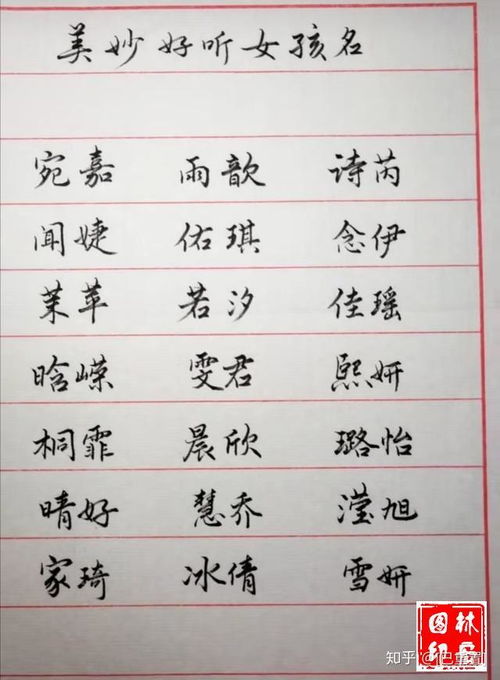 美妙好听女孩名
宛嘉 雨歆 诗芮
闻婕 佑琪 念伊
茉苹 若汐 佳瑶
晗嵘 雯君 熙妍
桐霏 晨欣 璐怡
晴好 慧乔 滢旭
家琦 冰倩 雪妍
知乎